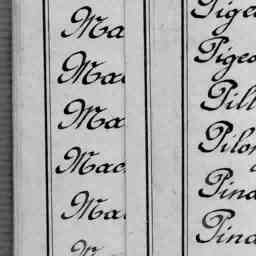 Ma
Mac
Ma
Mac
Mac
Pige
Pigeo
Pill
Pilo
Pina
Pina